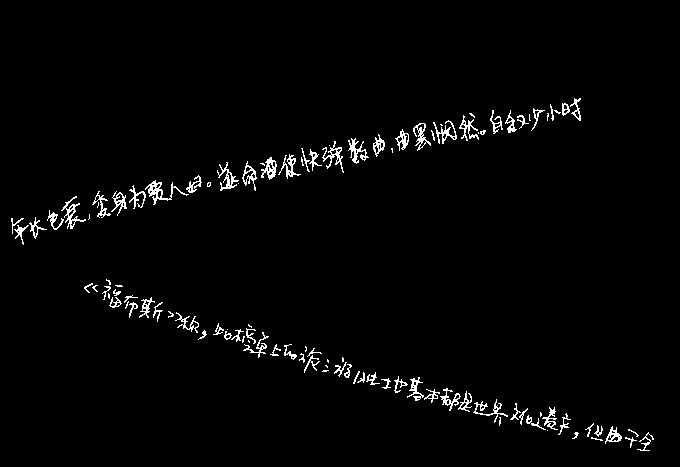 年长色衰,委身为贾人妇。遂命酒使快弹数曲,曲罢悯然。自叙少小时
《福布斯》称,此榜单上的旅游胜地基本都是世界文化遗产,但由于全